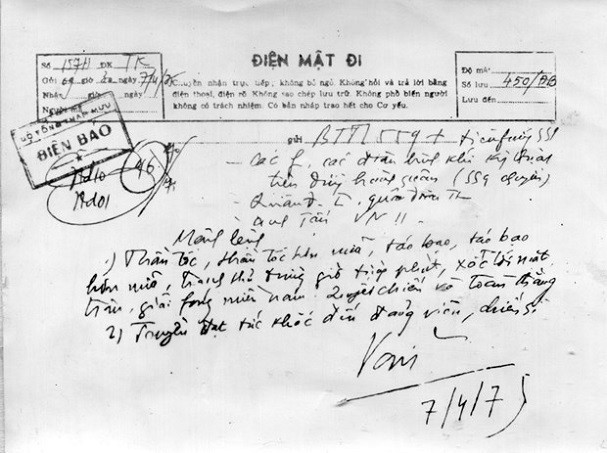 Số 157H ĐK TK
Gửi 09 giờ ngày 7/4/75
Nhận giờ ngày
Người
ĐIỆN MẬT ĐI
Chuyển nhận trực tiếp; không bỏ ngỏ. Không hỏi và trả lời bằng
điện thoại, điện rõ. Không sao chép lưu trữ. Không phổ biến người
không có trách nhiệm. Có bản nhập trao hết cho Cơ yếu.
Độ mật
Số lưu 450/ĐB
Lưu đến
BỘ TỔNG THAM MƯU
ĐIỆN BÁO
46
gửi BTTL 559 +
- Các f, các binh khí kỹ thuật
(559 chuyển)
- Quân đ. I, quân đoàn
VN !!
Mệnh lệnh
1) Thần tốc, thần tốc hơn nữa, táo bạo, táo bạo
hơn nữa, tranh thủ từng giờ từng phút, xốc tới mặt
trận, giải fóng miền nam. Quyết chiến và toàn thắng
2) Truyền đạt tức khắc đến đảng viên, chiến sĩ
Văn
7/4/75